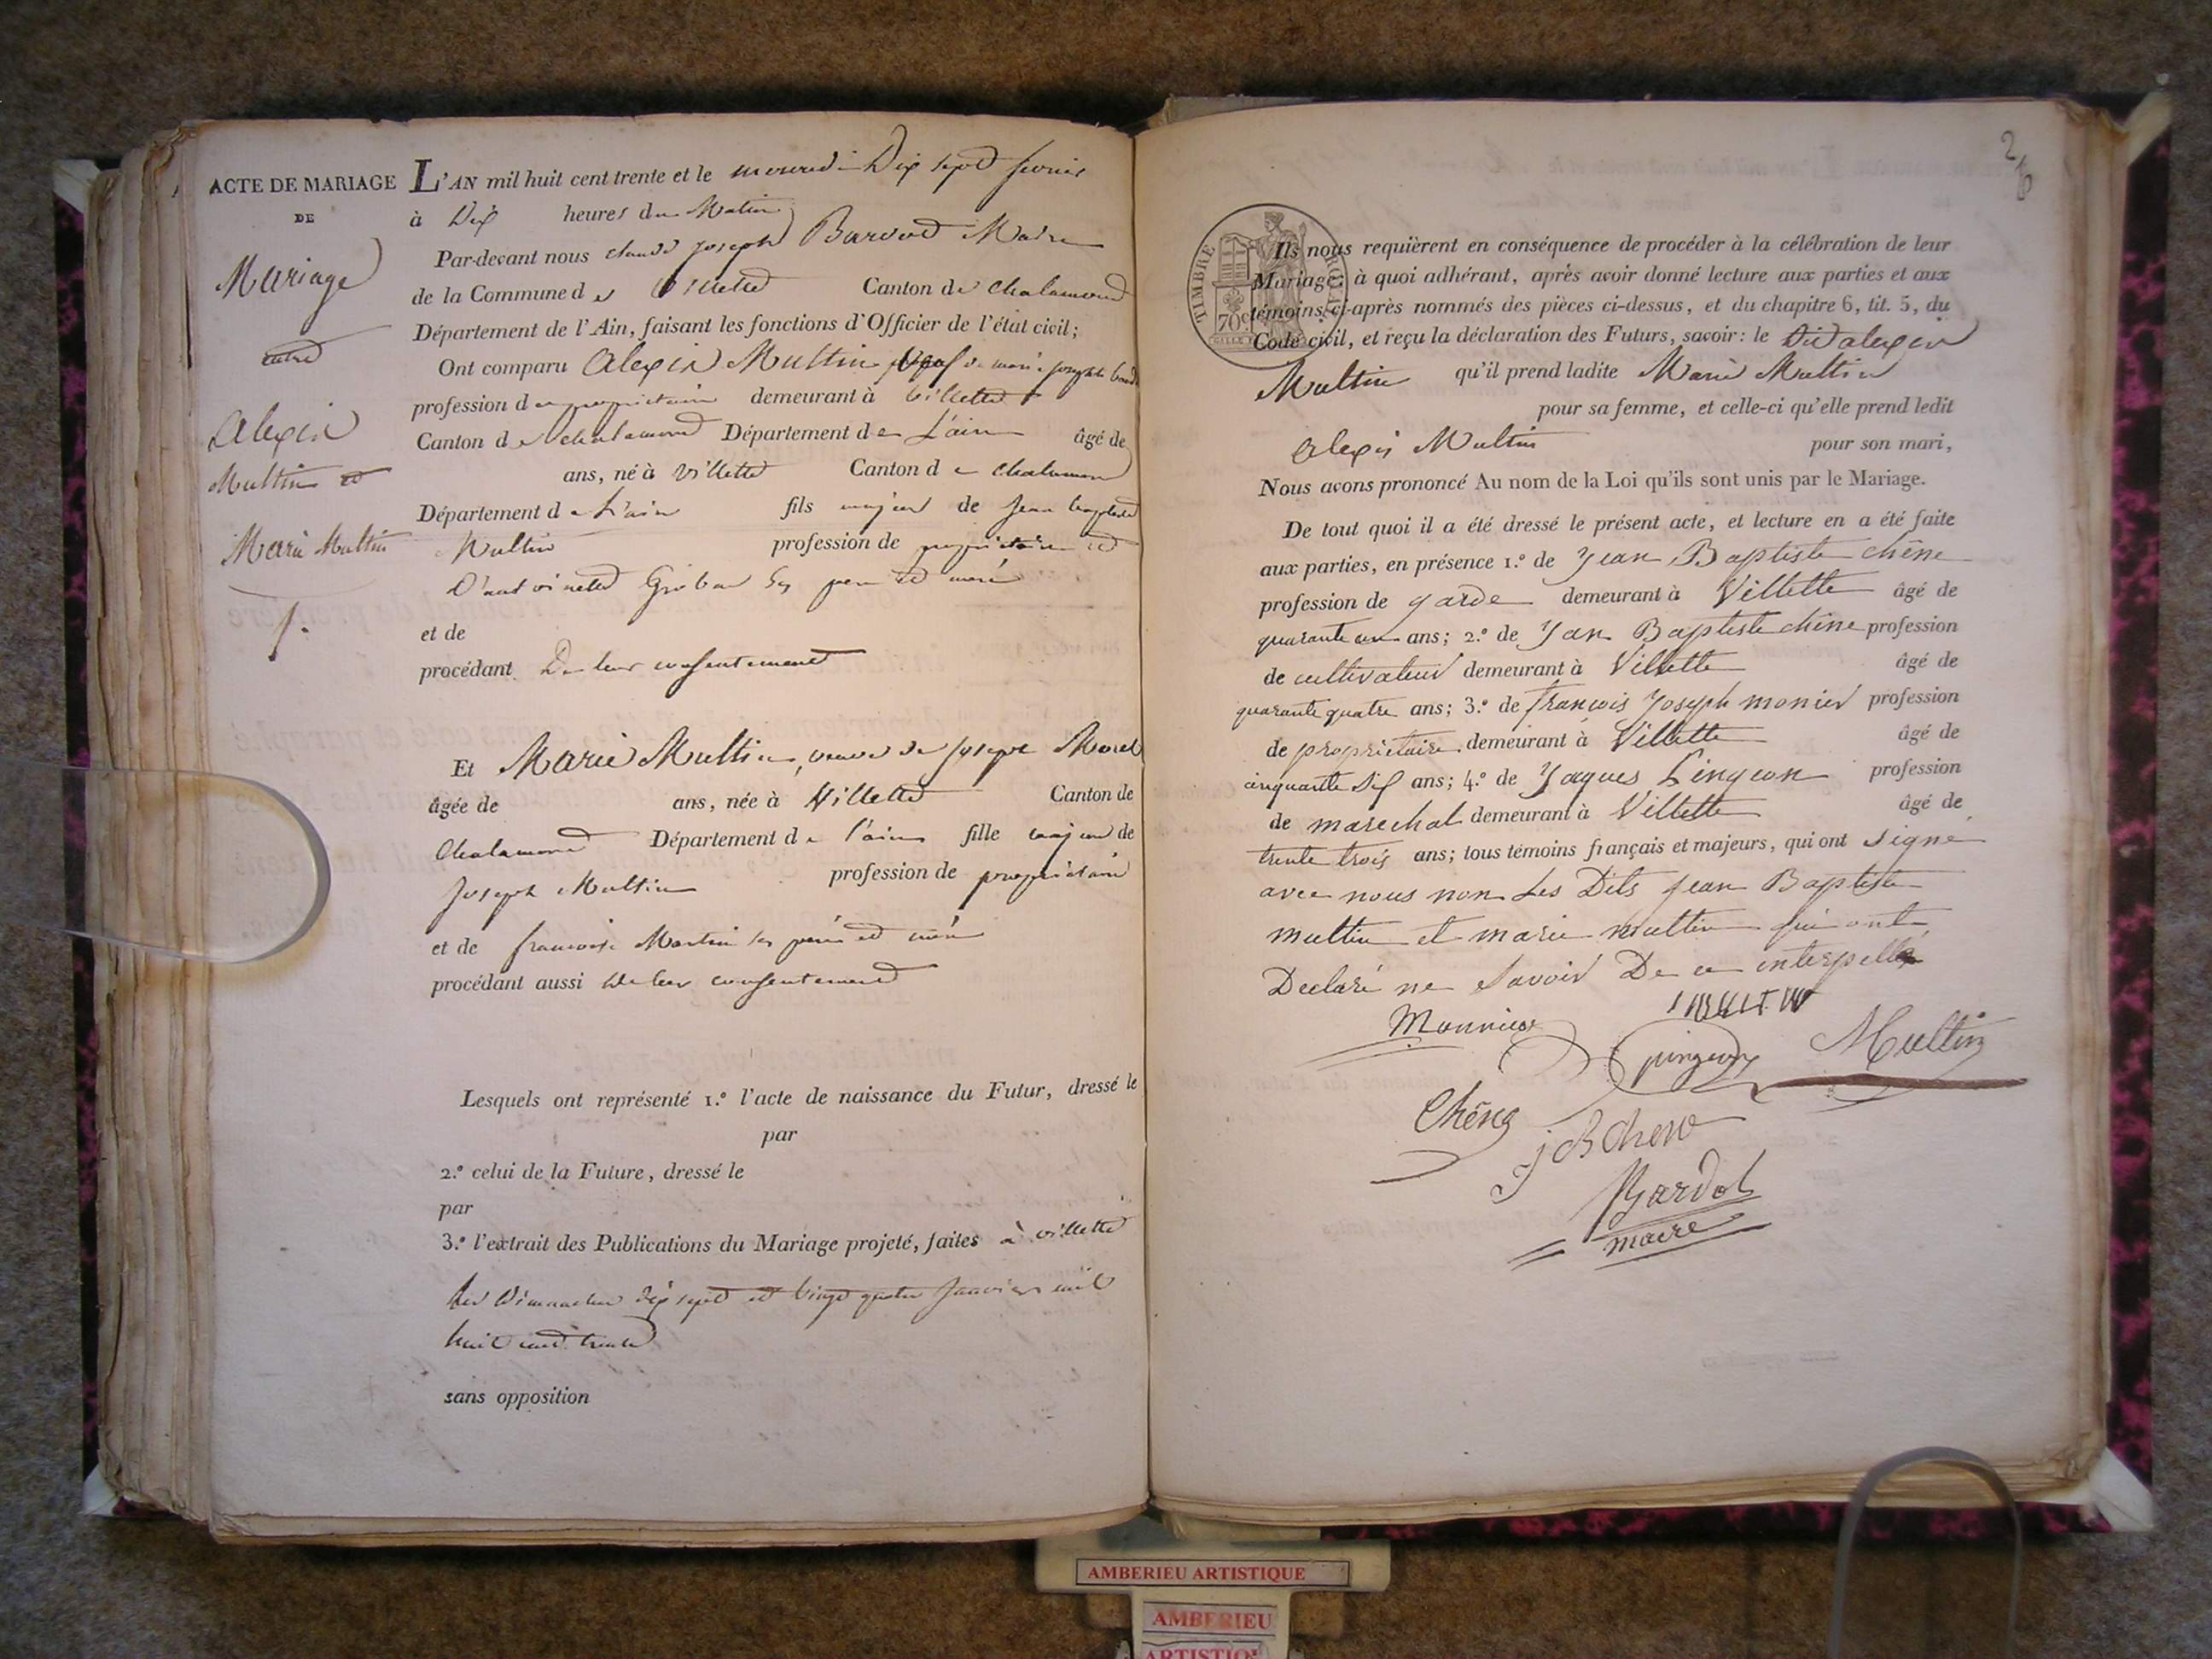 ACTE DE MARIAGE
DE
Mariage
entre
Alexis
Multin et
Marie Multin
1.
L'AN mil huit cent trente et le mercredi Dix sept fevrier
à Dix heures du Matin
Par-devant nous claude joseph Bardod Maire
de la Commune de Villette Canton de Chalamond
Département de l'Ain, faisant les fonctions d'Officier de l'état civil;
Ont comparu Alexis Multin veuf de marie josephte
profession de propriétaire demeurant à Villette
Canton de chalamond Département de L'ain âgé de
ans, né à Villette Canton de Chalamon
Département de L'ain fils majeur de Jean baptiste
Multin profession de propriétaire et
D'antoinette ses pere et mere
et de
procédant De leur consentement
Et Marie Multin, veuve de Joseph Morel
âgée de ans, née à Villette Canton de
Chalamond Département de l'ain fille majeure de
Joseph Multin profession de propriétaire
et de francoise Martin ses père et mère
procédant aussi de leur consentement
Lesquels ont représenté 1.° l'acte de naissance du Futur, dressé le
par
2.° celui de la Future, dressé le
par
3.° l'extrait des Publications du Mariage projeté, faites à villette
les Dimanches dix sept et vingt quatre Janvier mil
huit cent trente
sans opposition
26
TIMBRE ROYAL
70c
Ils nous requièrent en conséquence de procéder à la célébration de leur
Mariage; à quoi adhérant, après avoir donné lecture aux parties et aux
témoins ci-après nommés des pièces ci-dessus, et du chapitre 6, tit. 5, du
Code civil, et reçu la déclaration des Futurs, savoir: le Dit alexis
Multin qu'il prend ladite Marie Multin
pour sa femme, et celle-ci qu'elle prend ledit
alexis Multin pour son mari,
Nous avons prononcé Au nom de la Loi qu'ils sont unis par le Mariage.
De tout quoi il a été dressé le présent acte, et lecture en a été faite
aux parties, en présence 1.° de Jean Baptiste chêne
profession de garde demeurant à Villette âgé de
quarante un ans; 2.° de Jean Baptiste chêne profession
de cultivateur demeurant à Villette âgé de
quarante quatre ans; 3.° de françois Joseph monier profession
de propriétaire demeurant à Villette âgé de
cinquante dix ans; 4.° de Jaques Pingeon profession
de marechal demeurant à Villette âgé de
trente trois ans; tous témoins français et majeurs, qui ont signé
avec nous non Les Dits Jean Baptiste
multin et marie multin qui ont
Declaré ne Savoir De ce interpellé
Monnier
pingeon Multin
Chêne
j B Chene
Bardot
maire
AMBERIEU ARTISTIQUE
AMBERIEU
ARTISTIQUE